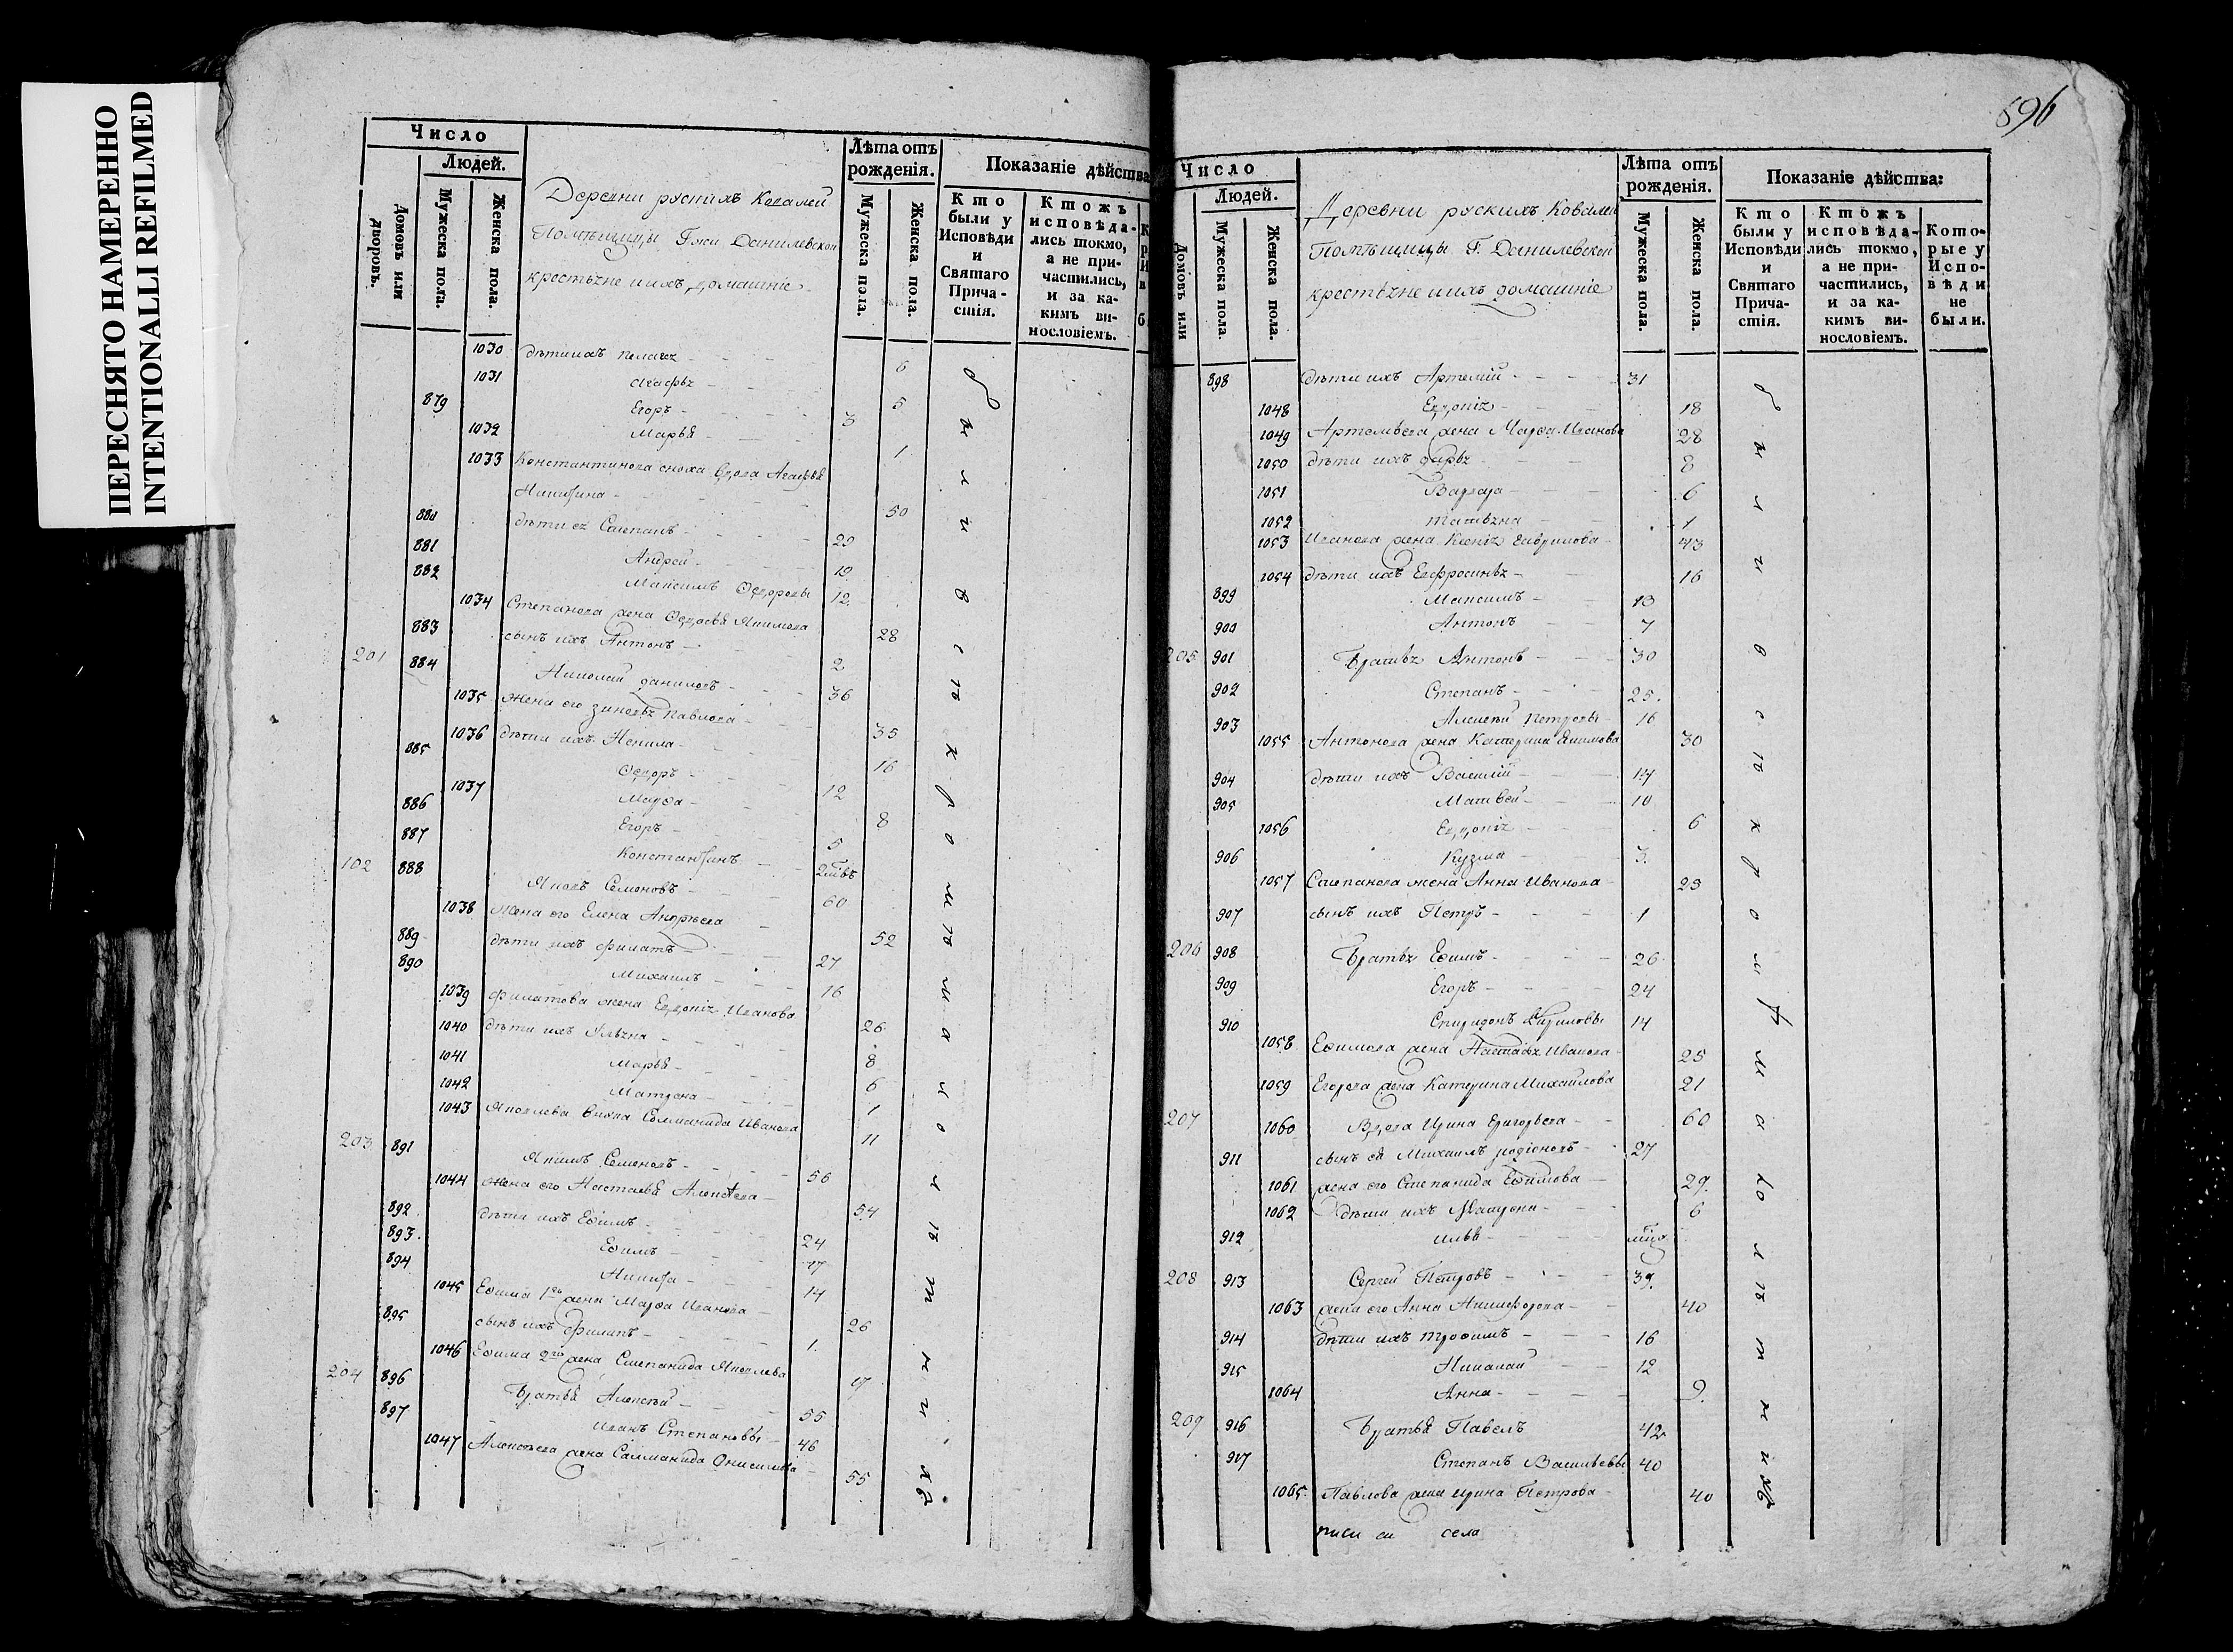 ПЕРЕСНЯТО НАМЕРЕННО
INTENTIONALLI REFILMED
Число
Людей.
Домовъ или дворовъ.
Мужеска пола.
Женска пола.
Деревни рускихъ Ковалей
Помѣщицы Гжи Данилевской
крестьяне и ихъ домашніе
Лѣта отъ рожденія.
Мужеска пола.
Женска пола.
Показаніе дѣйства
Кто были у Исповѣди и Святаго Причастія.
Ктожъ исповѣдались токмо, а не причастились, и за какимъ винословіемъ.
1030 дѣти ихъ Пелагея 6
1031 Агафья 5
879 Егоръ 3
1032 Марья 1
1033 Константинова сноха вдова Агафья
Никитина 50
880 дѣти ея Степанъ 29
881 Андрей 19
882 Максимъ Ѳедоровы 12
1034 Степанова жена Ѳедосья Якимова 28
883 сынъ ихъ Антонъ 2
201 884 Николай Даниловъ 36
1035 жена его Зиновья Павлова 35
1036 дѣти ихъ Ненила 16
885 Ѳедоръ 12
1037 Марѳа 8
886 Егоръ 5
887 Константинъ
102 888 Яковъ Семеновъ 60
1038 Жена его Елена Андрѣева 52
889 дѣти ихъ Филатъ 27
890 Михаилъ 16
1039 Филатова жена Евдонія Иванова 26
1040 дѣти ихъ Ульяна 8
1041 Марья 6
1042 Матрена 1
1043 Яковлева внука Соломанида Иванова 11
203 891 Якимъ Семеновъ 56
1044 жена его Настасья Алексѣева 54
892 дѣти ихъ Ефимъ 24
893 Ефимъ 17
894 Никита 14
1045 Ефима 1го жена Марѳа Иванова 26
895 сынъ ихъ Филипъ 1
1046 Ефима 2го жена Степанида Яковлева 17
204 896 Братья Алексѣй 55
897 Иванъ Степановы 46
1047 Алексѣева жена Саломанида Онисимова 55
596
Число
Людей.
Домовъ или
Мужеска пола.
Женска пола.
Деревни рускихъ Ковалей
Помѣщицы Г. Данилевской
крестьяне и ихъ домашніе
Лѣта отъ рожденія.
Мужеска пола.
Женска пола.
Показаніе дѣйства:
Кто были у Исповѣди и Святаго Причастія.
Ктожъ исповѣдались токмо, а не причастились, и за какимъ винословіемъ.
Которые у Исповѣди не были.
898 дѣти ихъ Артемій 31
1048 Евдонія 18
1049 Артемьева жена Марѳа Иванова 28
1050 дѣти ихъ Дарья 8
1051 Варвара 6
1052 Татьяна 1
1053 Иванова жена Ксенія Гаврилова 43
1054 дѣти ихъ Евфросинья 16
899 Максимъ 13
900 Антонъ 7
205 901 Братья Антонъ 30
902 Степанъ 25
903 Алексѣй Петровы 16
1055 Антонова жена Катерина Якимова 30
904 дѣти ихъ Василій 14
905 Матвей 10
1056 Евдонія 6
906 Кузма 3
1057 Степанова жена Анна Иванова 23
907 сынъ ихъ Петръ 1
206 908 Братья Ефимъ 26
909 Егоръ 24
910 Спиридонъ Кириловы 14
1058 Ефимова жена Настасья Иванова 25
1059 Егорова жена Катерина Михайлова 21
207 1060 Вдова Ирина Григорьева 60
911 сынъ ея Михаилъ Родіоновъ 27
1061 жена его Степанида Ефимова 29
1062 дѣти ихъ Матрена 6
912 Илья
208 913 Сергей Петровъ 39
1063 жена его Анна Никифорова 40
914 дѣти ихъ Трофимъ 16
915 Николай 12
1064 Анна 9
209 916 Братья Павелъ 42
917 Степанъ Васильевы 40
1065 Павлова жена Ирина Петрова 40
села